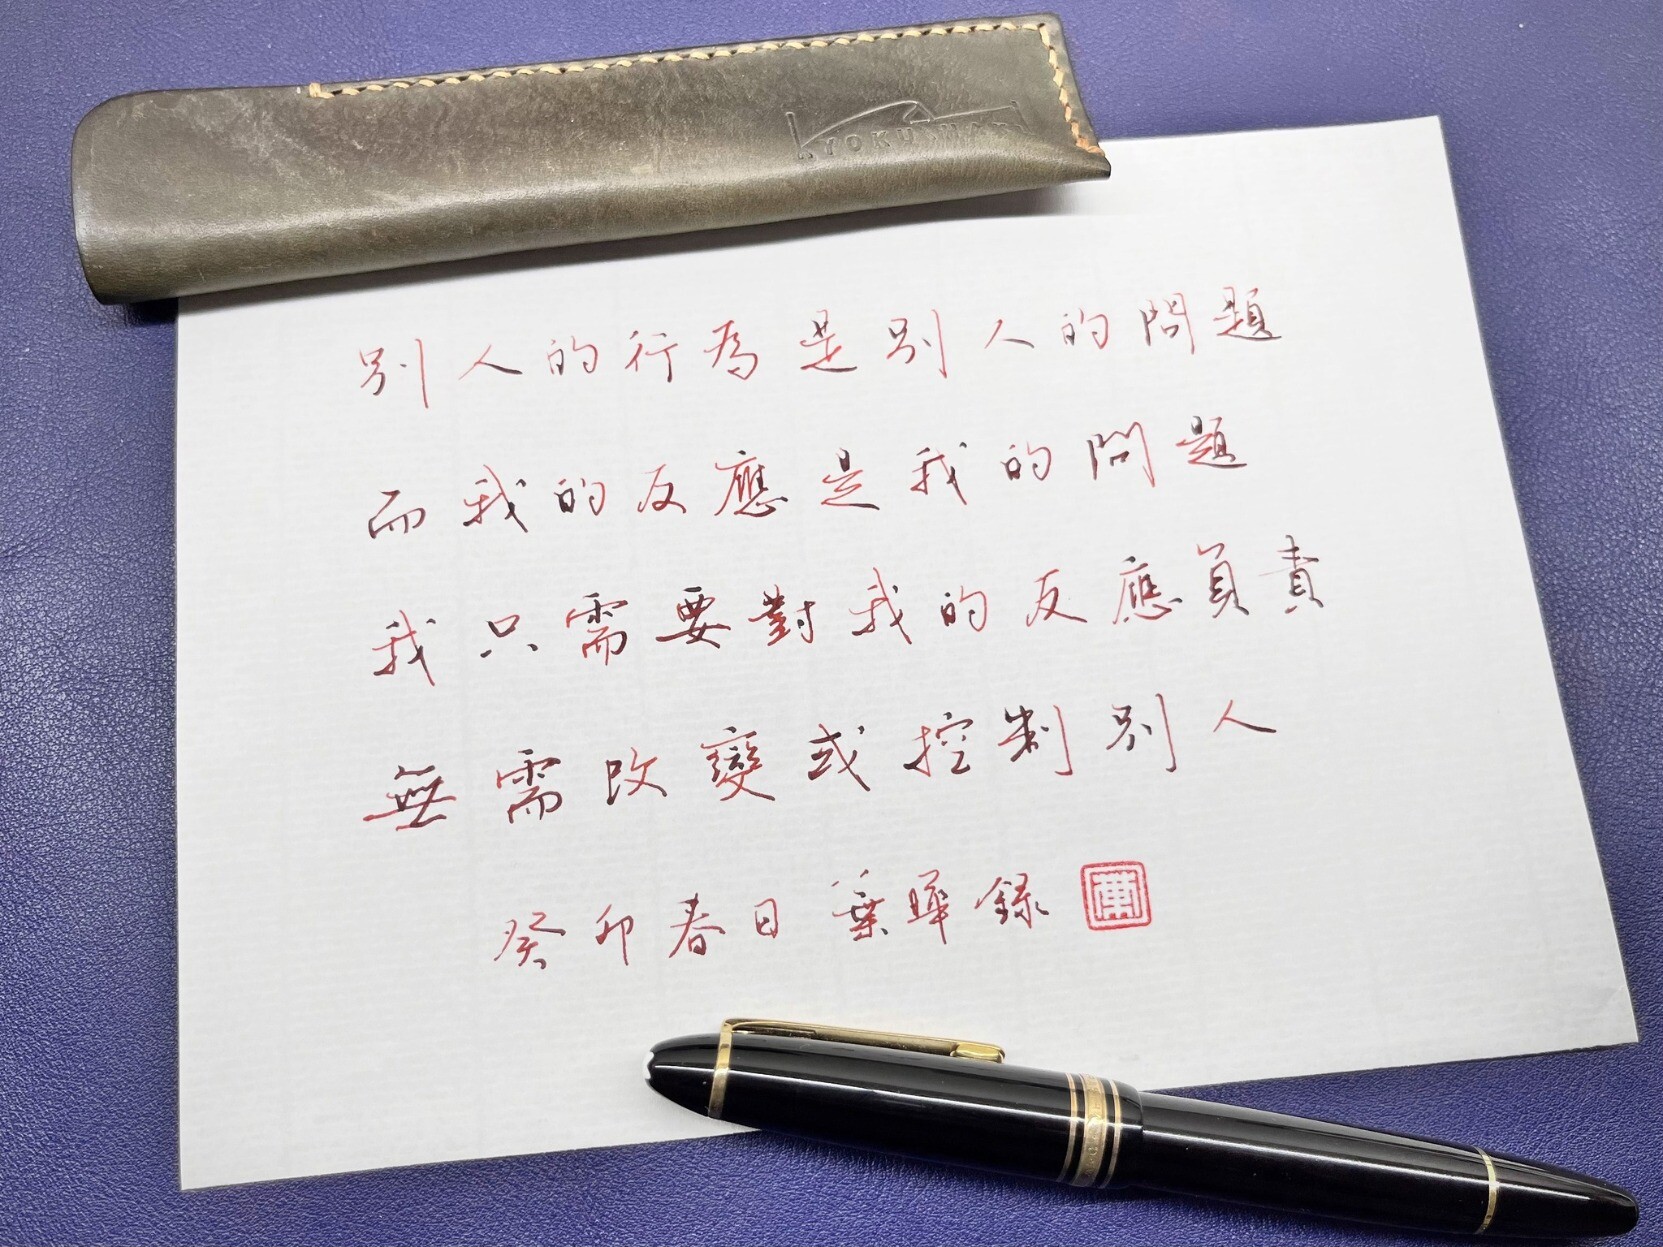 別人的行為是別人的問題
而我的反應是我的問題
我只需要對我的反應負責
無需改變或控制別人
癸卯春日 葉曄錄